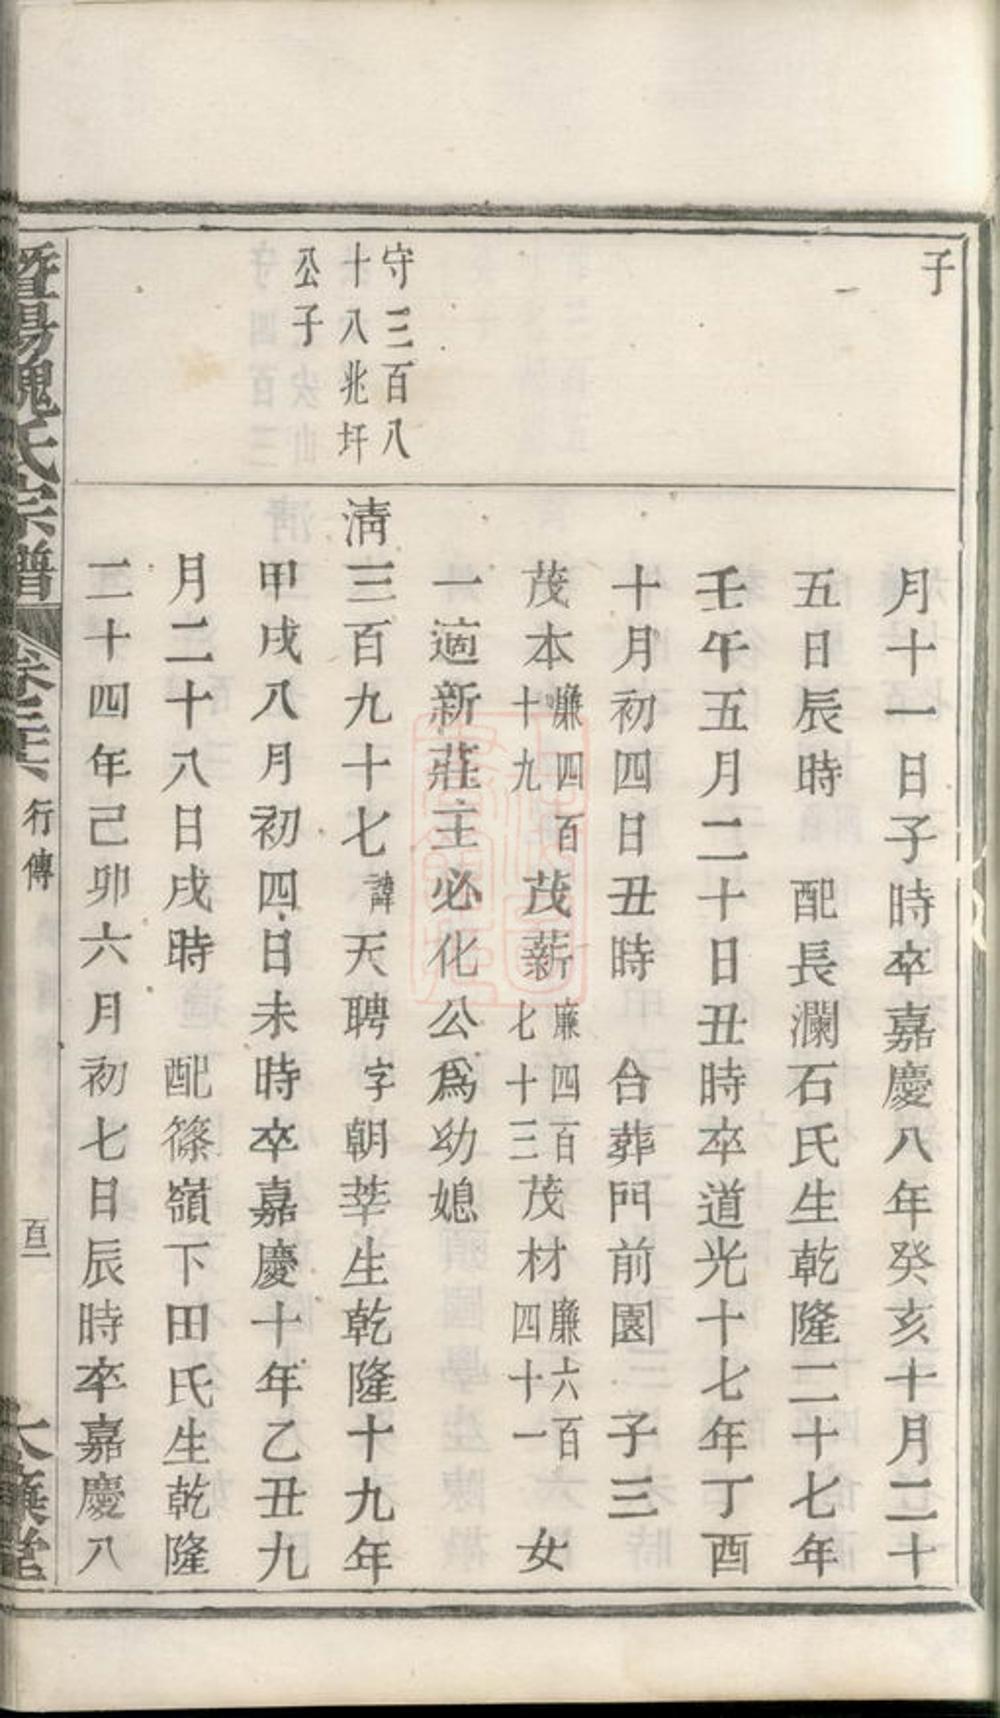 子
月十一日子時卒嘉慶八年癸亥十月二十
五日辰時 配長瀾石氏生乾隆二十七年
壬午五月二十日丑時卒道光十七年丁酉
十月初四日丑時 合葬門前園 子三
茂本廉四百十九茂薪廉四百七十三茂材廉六百四十一 女
一適新莊主必化公為幼媳
守三百八
十八兆圩
公子
清三百九十七諱天聘字朝莘生乾隆十九年
甲戌八月初四日未時卒嘉慶十年乙丑九
月二十八日戌時 配篠嶺下田氏生乾隆
二十四年己卯六月初七日辰時卒嘉慶八
暨陽魏氏宗譜
行傳